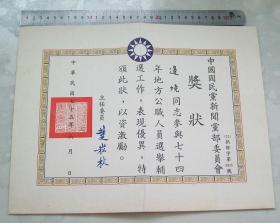 中國國民黨新聞黨部委員會
獎狀
邊境同志參與七十四
年地方公職人員選舉輔
選工作，表現優異。特
頒此狀，以資激勵。
主任委員 楚崧秋
中華民國 十五年 月 日